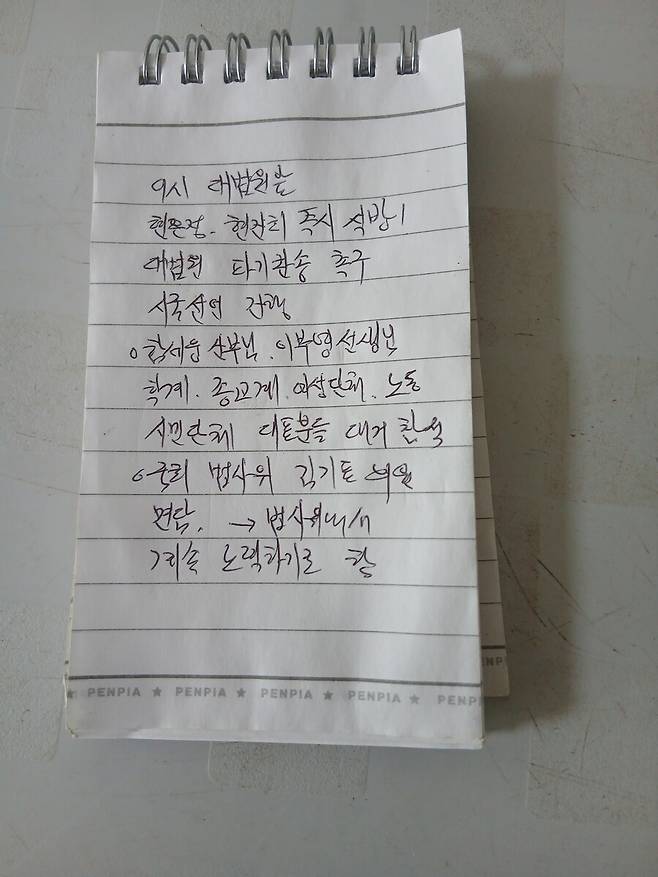 9시 대법원앞
현은정. 현진희 즉시 석방!
대법원 파기환송 촉구
시국선언 진행
o 함세웅 신부님. 이부영 선생님
학계. 종교계. 여성단체. 노동
시민단체 대표분들 대거 참석
o 국회 법사위 김기표 의원
면담. → 법사위내에서
계속 노력하기로 함
★ PENPIA ★ PENPIA ★ PENPIA ★ PENPIA ★ PENPIA